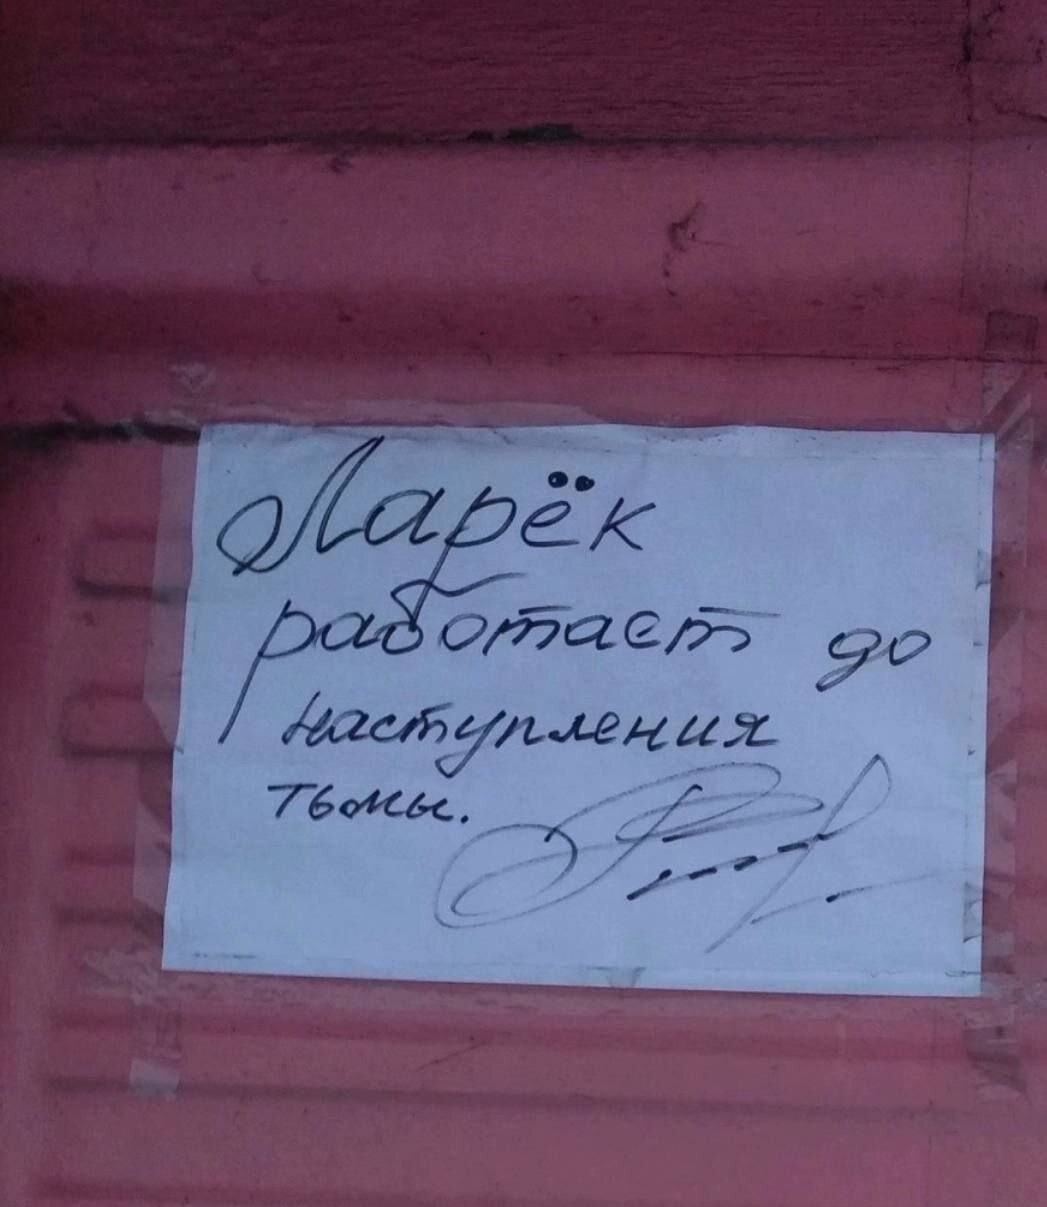 Ларёк
работает до
наступления
тьмы.